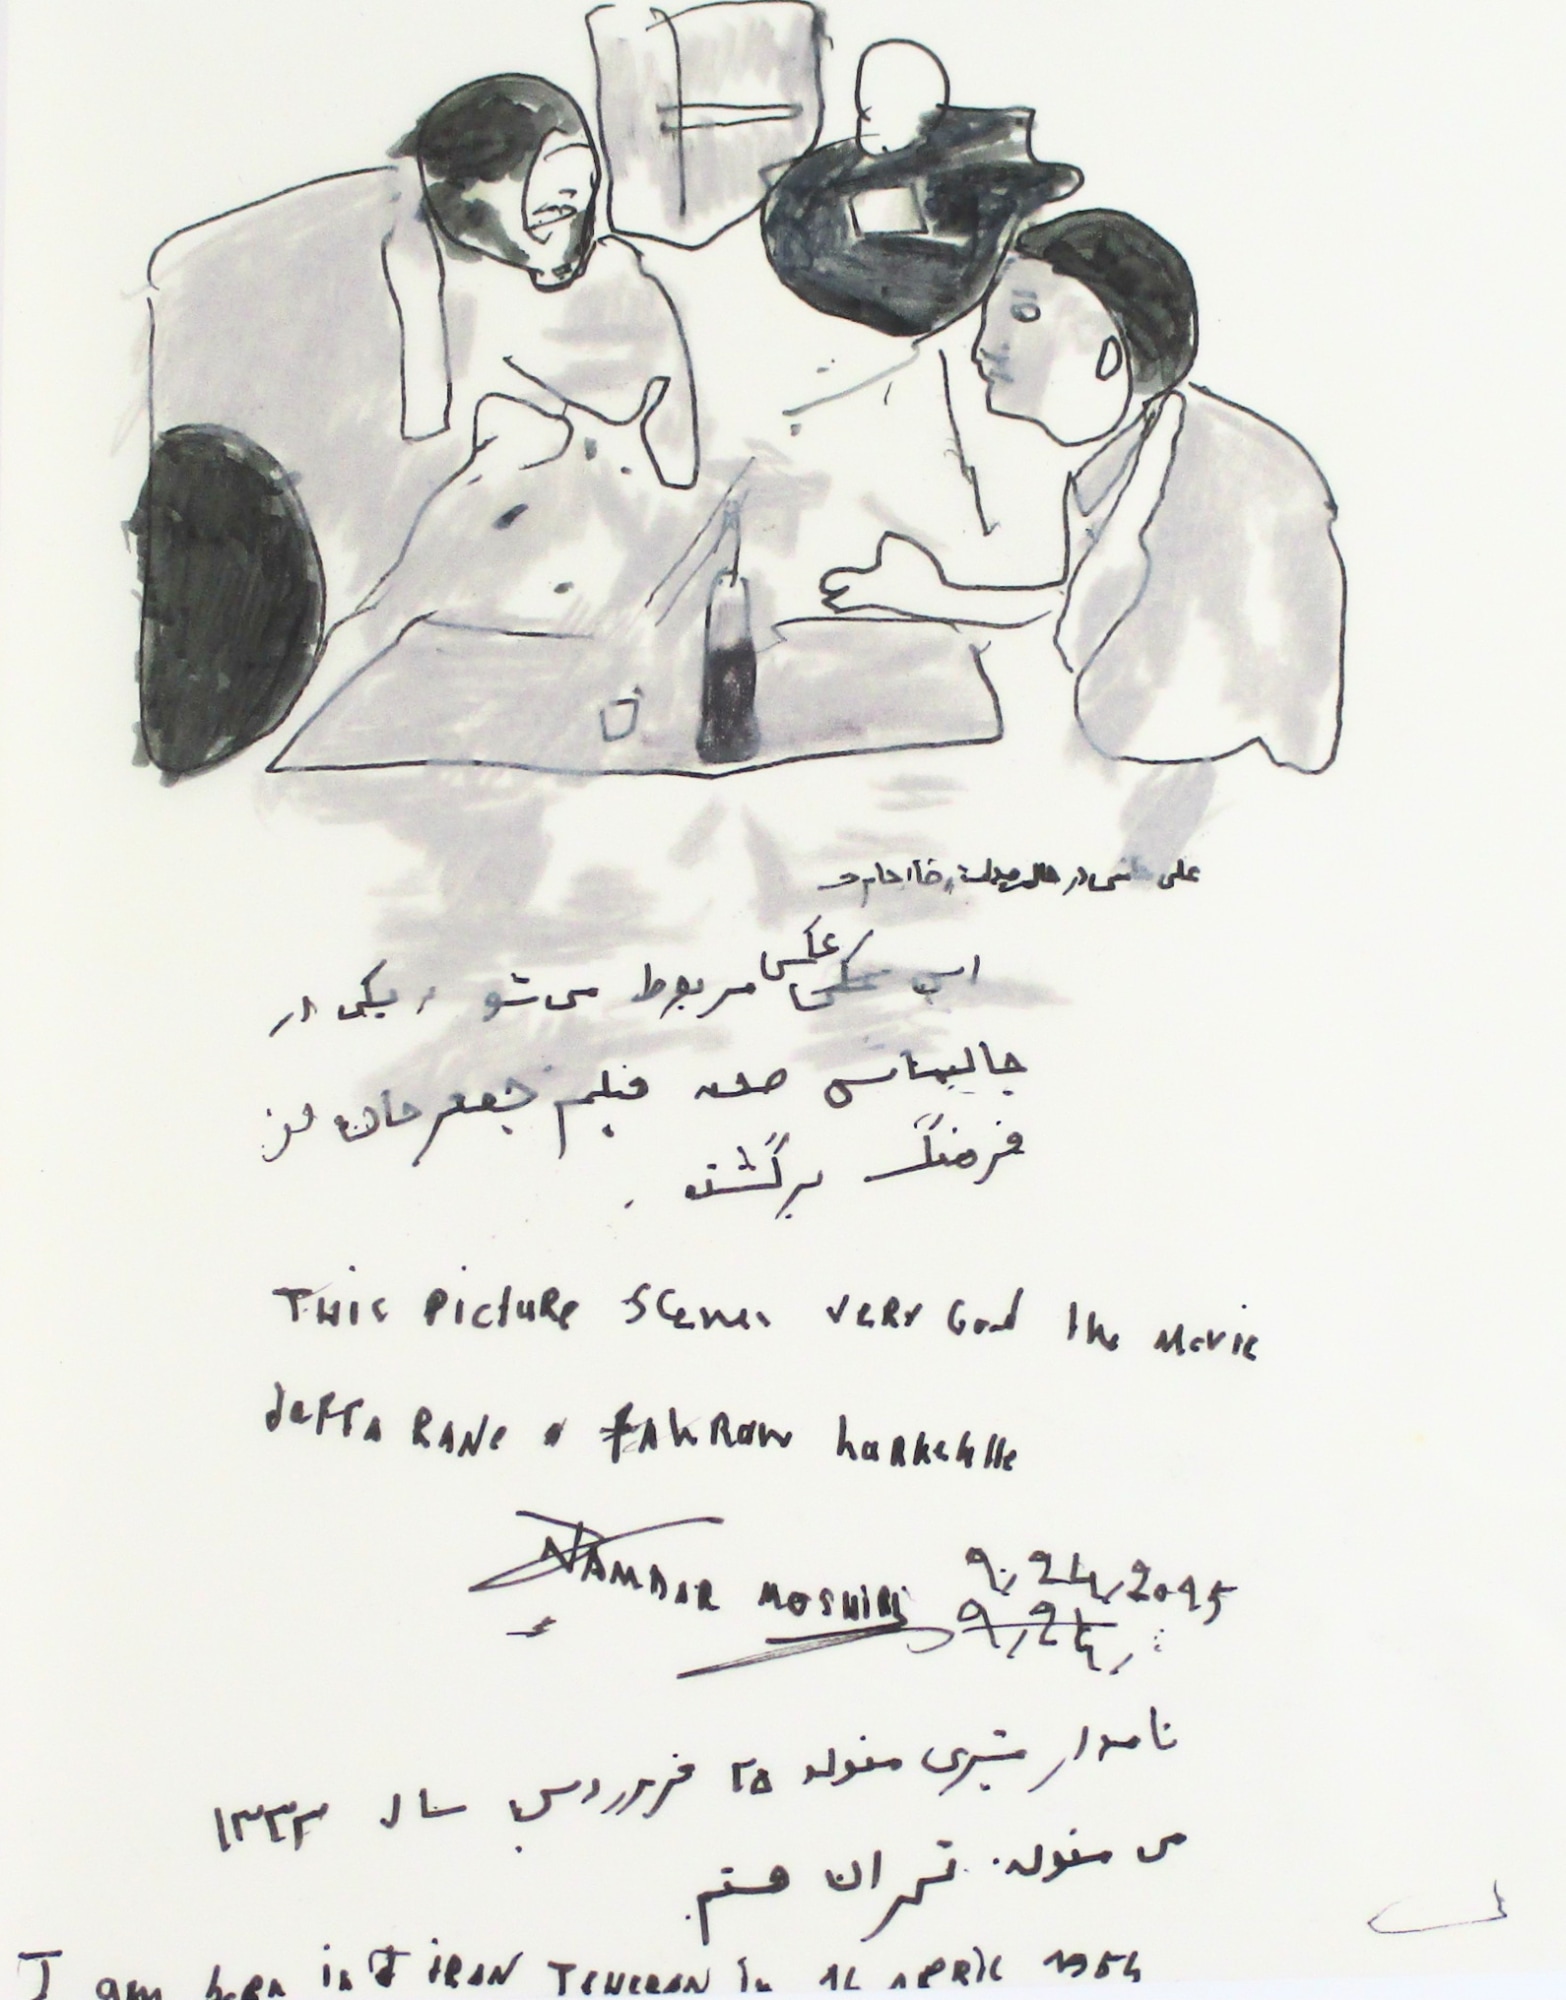 علی در خانم
این عکس عکس مربوط می‌شو یکی در
جالبتاسی صحنه فیلم جعفر خان از
فرهنگ برگشته .
THIS PictuRe Scenes VeRY Good the Movie
JaFFA RANe FAhRaN
NAMDAR MOSHIRI 9,24,2015
9,24,
نامدار مشیری متولد ۲۵ فروردین سال ۱۳۳۳
من متولد تهران هستم
I am born in IRAN TEHERAN in 14 APRIL 1954